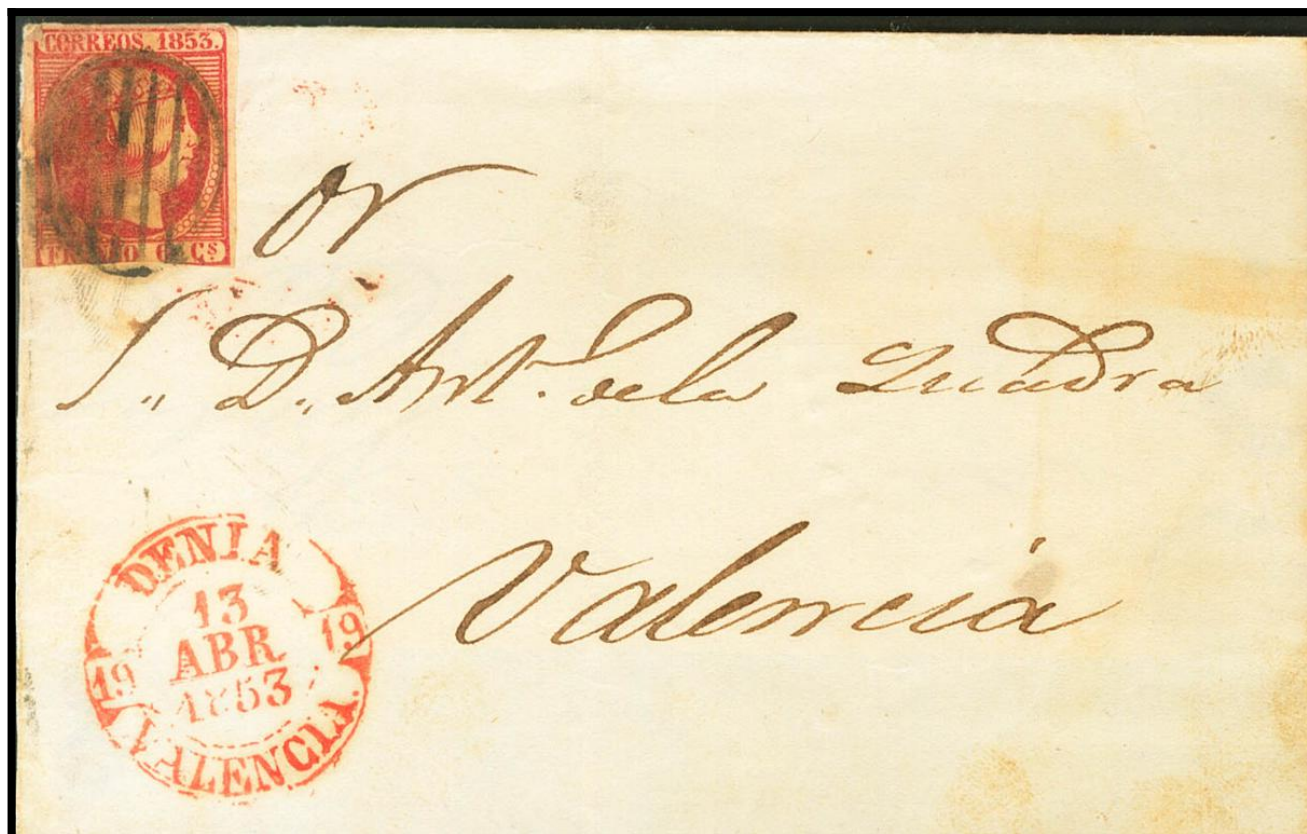 CORREOS. 1853.
FRANCO 6 Cs
Or
S,, D,, Ant. de la Quadra
Valencia
DENIA
13
ABR
1853
19 19
VALENCIA.